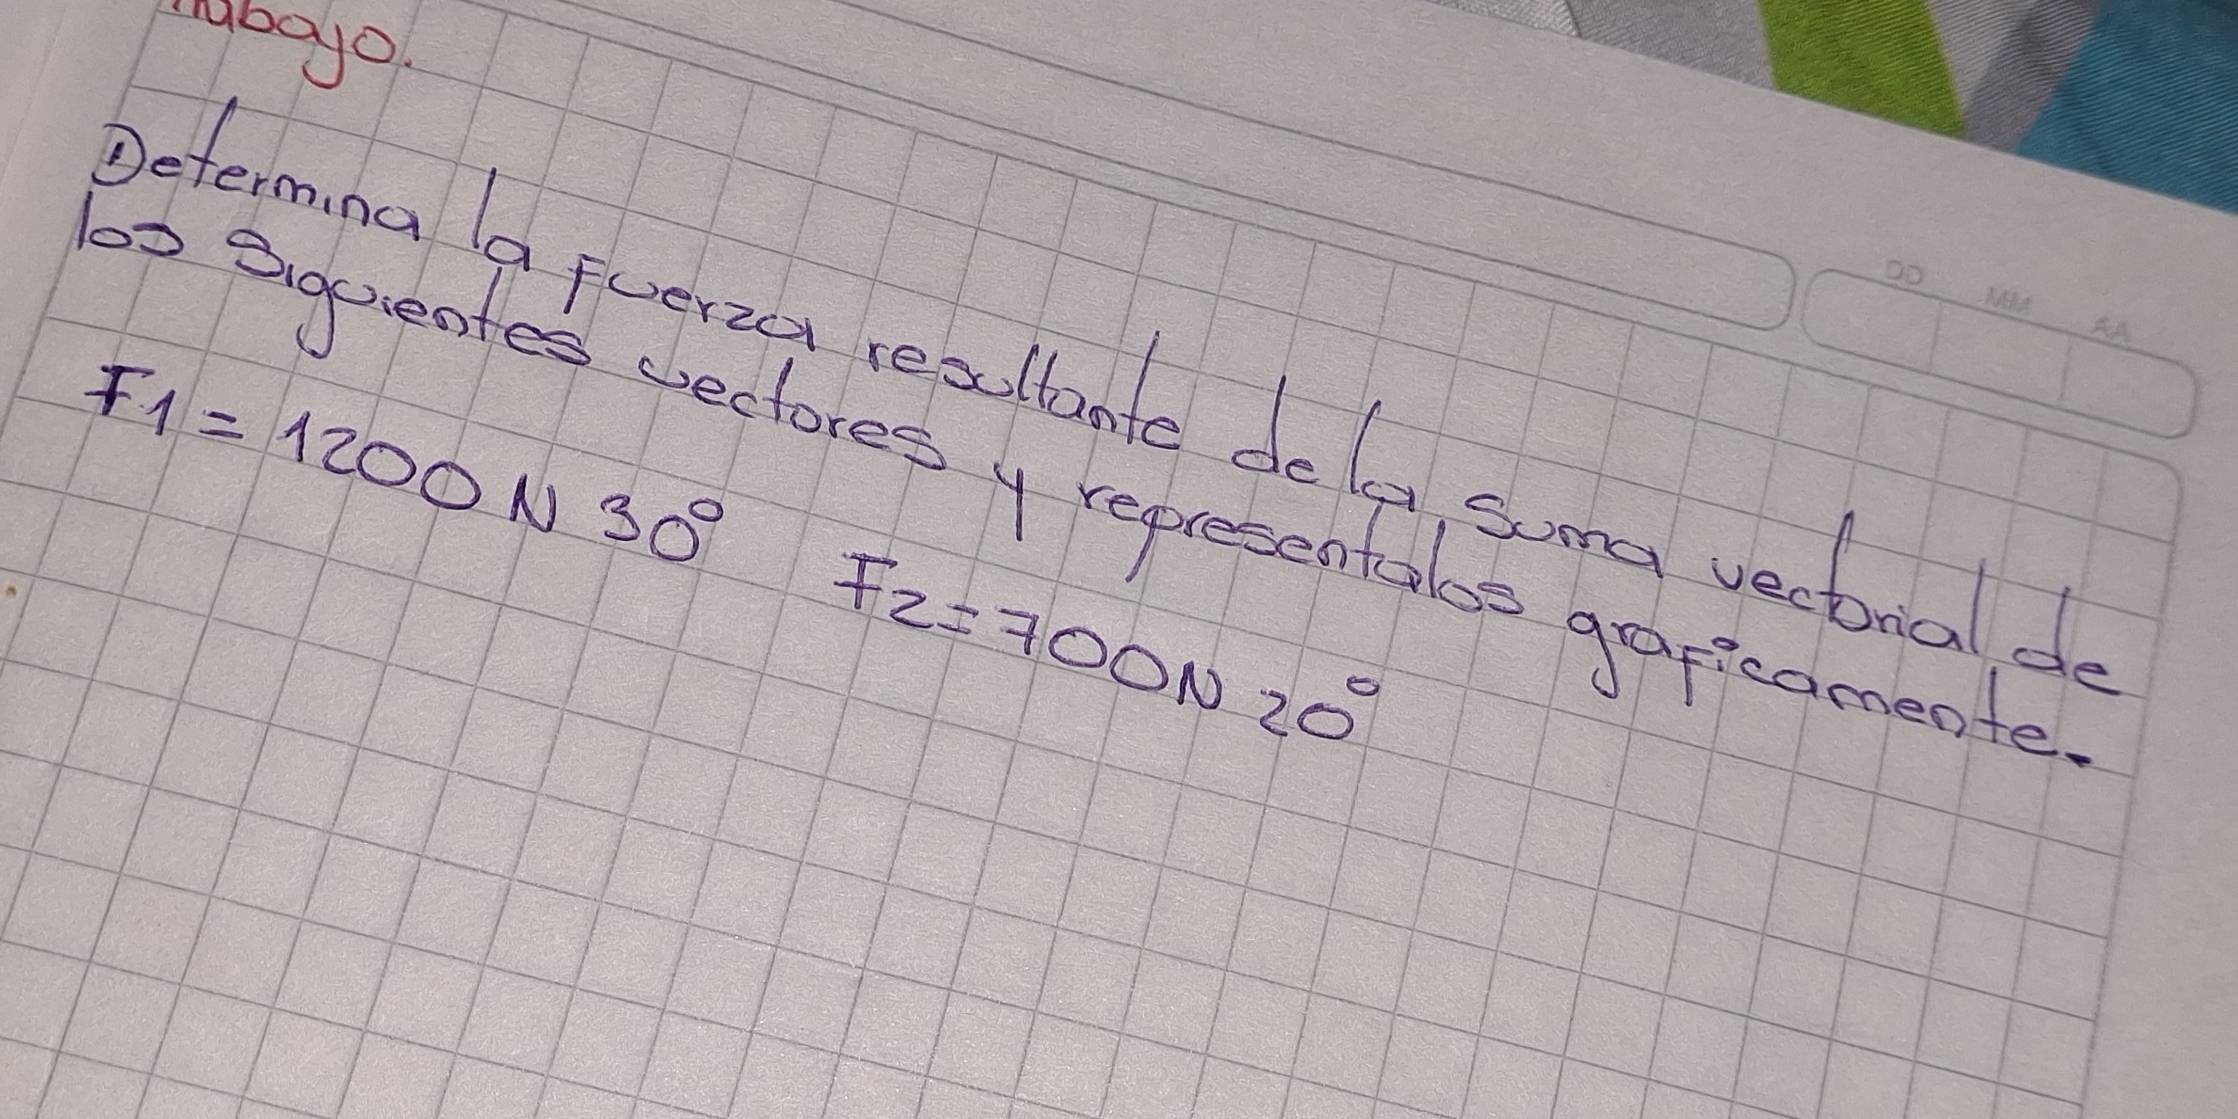 Determina la fuerza resultante de la suma vectorial de
los siguientes vectores y representalos graficamente.
F1 = 1200 N 30° F2 = 700 N 20°
DD MM AA